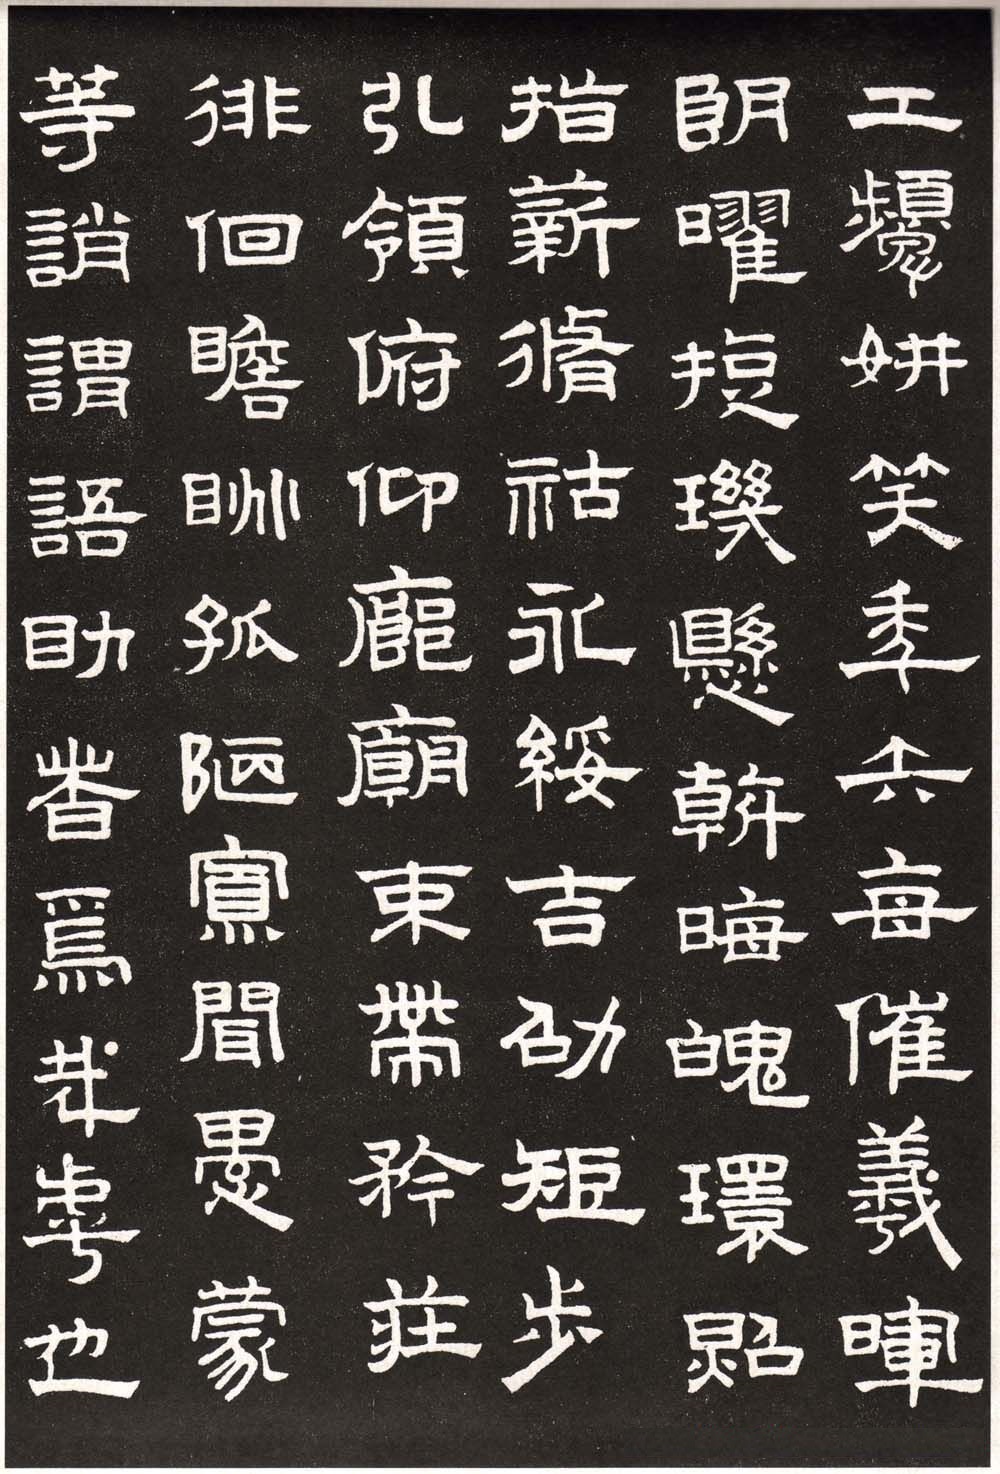 工顰妍笑年矢每催羲暉
朗曜旋璣懸斡晦魄環照
指薪脩祜永綏吉劭矩步
引領俯仰廊廟束帶矜莊
徘徊瞻眺孤陋寡聞愚蒙
等誚謂語助者焉哉乎也